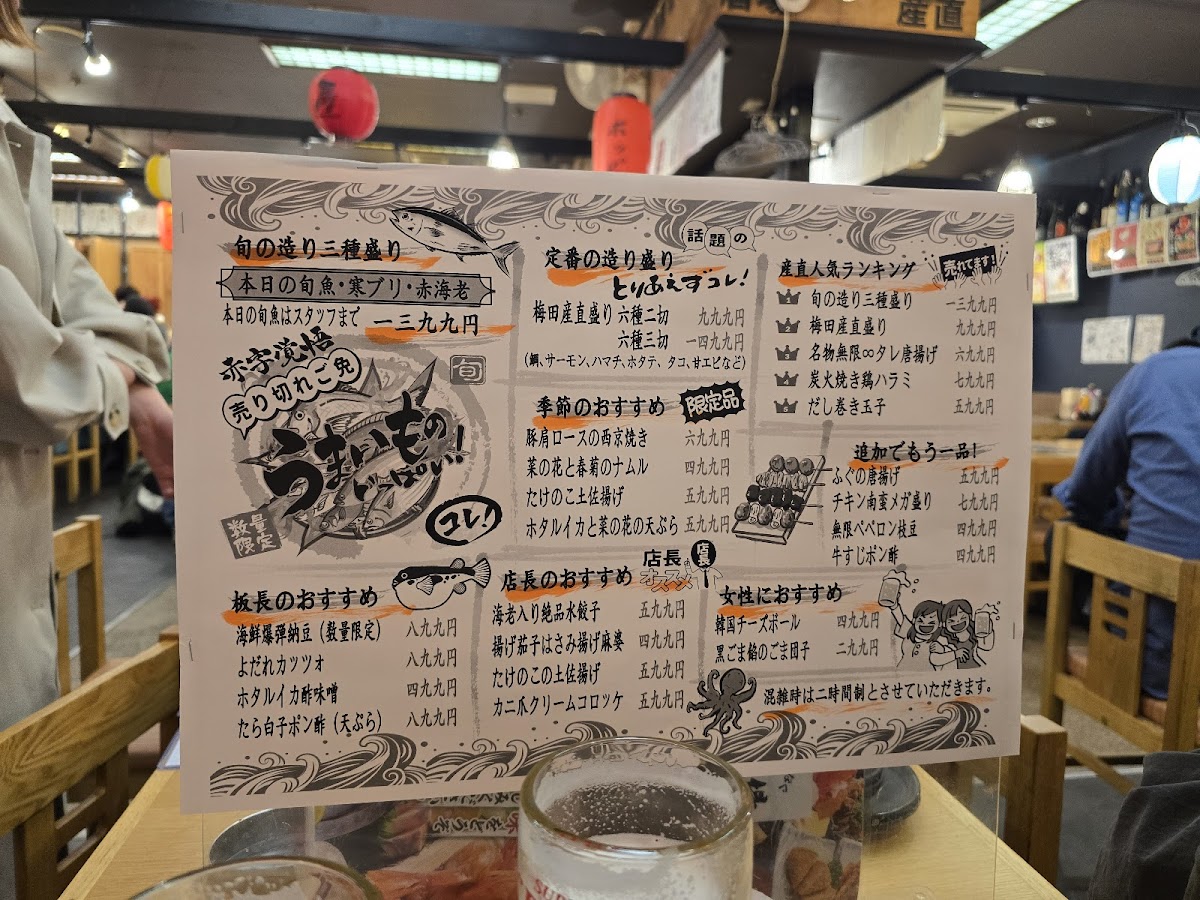 産直
ホッピ
旬の造り三種盛り
本日の旬魚・寒ブリ・赤海老
本日の旬魚はスタッフまで 一三九九円
赤字覚悟
売り切れご免
旬
うまいもの
いっぱい!
コレ!
数量
限定
話題の
定番の造り盛り
とりあえずコレ!
梅田産直盛り 六種二切 九九九円
六種三切 一四九九円
(鯛、サーモン、ハマチ、ホタテ、タコ、甘エビなど)
季節のおすすめ 限定品
豚肩ロースの西京焼き 六九九円
菜の花と春菊のナムル 四九九円
たけのこ土佐揚げ 五九九円
ホタルイカと菜の花の天ぷら 五九九円
産直人気ランキング 売れてます!
旬の造り三種盛り 一三九九円
梅田産直盛り 九九九円
3 名物無限∞タレ唐揚げ 六九九円
4 炭火焼き鶏ハラミ 七九九円
5 だし巻き玉子 五九九円
追加でもう一品!
ふぐの唐揚げ 五九九円
チキン南蛮メガ盛り 七九九円
無限ペペロン枝豆 四九九円
牛すじポン酢 四九九円
板長のおすすめ
海鮮爆弾納豆(数量限定) 八九九円
よだれカツツオ 八九九円
ホタルイカ酢味噌 四九九円
たら白子ポン酢(天ぷら) 八九九円
店長のおすすめ
店長のオススメ
店長
海老入り絶品水餃子 五九九円
揚げ茄子はさみ揚げ麻婆 四九九円
たけのこの土佐揚げ 五九九円
カニ爪クリームコロッケ 五九九円
女性におすすめ
韓国チーズボール 四九九円
黒ごま餡のごま団子 二九九円
混雑時は二時間制とさせていただきます。
SUP